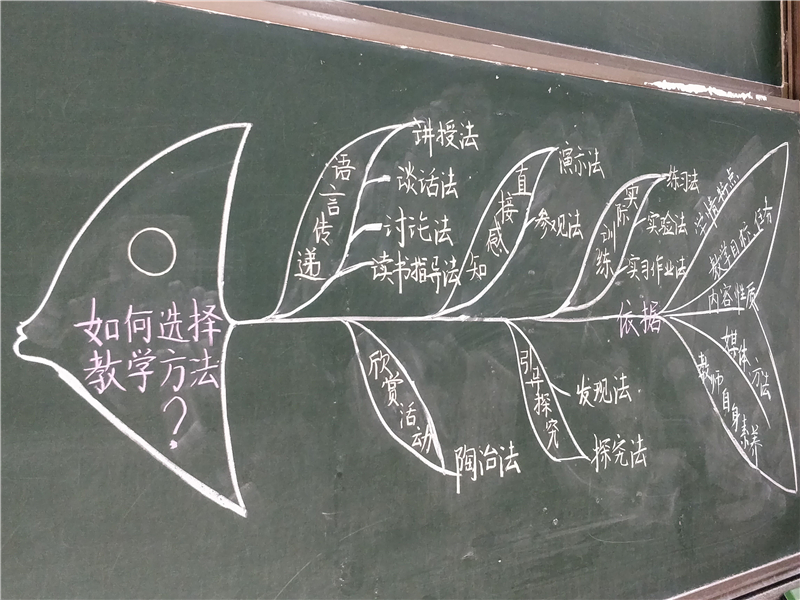 如何选择
教学方法
?
语言传递
讲授法
谈话法
讨论法
读书指导法
直接感知
演示法
参观法
实际训练
练习法
实验法
实习作业法
欣赏活动
陶冶法
引导探究
发现法
探究法
依据
学情特点
教学目标、任务
内容性质
媒体方法
教师自身素养